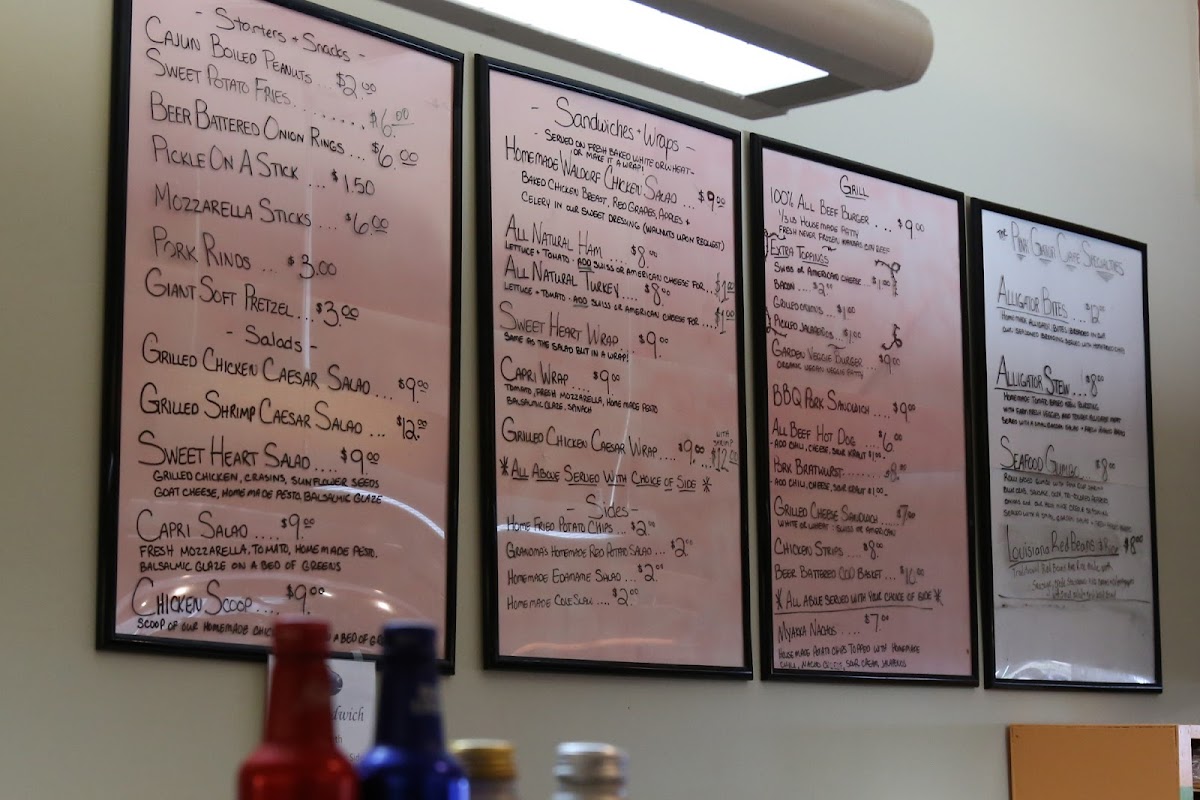 - Starters + Snacks -
CAJUN BOILED PEANUTS ... $2.00
SWEET POTATO FRIES....... $6.00
BEER BATTERED ONION RINGS... $6.00
PICKLE ON A STICK ... $1.50
MOZZARELLA STICKS ... $6.00
PORK RINDS ... $3.00
GIANT SOFT PRETZEL .. $3.00
- Salads -
GRILLED CHICKEN CAESAR SALAD .... $9.00
GRILLED SHRIMP CAESAR SALAD ... $12.00
SWEET HEART SALAD .... $9.00
GRILLED CHICKEN, CRASINS, SUNFLOWER SEEDS
GOAT CHEESE, HOMEMADE PESTO, BALSALMIC GLAZE
CAPRI SALAD .... $9.00
FRESH MOZZARELLA, TOMATO, HOMEMADE PESTO.
BALSALMIC GLAZE ON A BED OF GREENS
CHICKEN SCOOP .... $9.00
SCOOP OF OUR HOMEMADE A BED OF
- Sandwiches + Wraps -
- SERVED ON FRESH BAKED WHITE OR WHEAT-
OR MAKE IT A WRAP!
HOMEMADE WALDORF CHICKEN SALAD ... $9.00
BAKED CHICKEN BREAST, RED GRAPES, APPLES +
CELERY IN OUR SWEET DRESSING (WALNUTS UPON REQUEST)
ALL NATURAL HAM ... $8.00
LETTUCE + TOMATO - ADD SWISS OR AMERICAN CHEESE FOR... $1.00
ALL NATURAL TURKEY.... $8.00
LETTUCE + TOMATO - ADD SWISS OR AMERICAN CHEESE FOR ... $1.00
SWEET HEART WRAP ... $9.00
SAME AS THE SALAD BUT IN A WRAP!
CAPRI WRAP .... $9.00
TOMATO, FRESH MOZZARELLA, HOMEMADE PESTO
BALSALMIC GLAZE, SPINACH
GRILLED CHICKEN CAESAR WRAP.... $9.00 WITH SHRIMP $12.00
* ALL ABOVE SERVED WITH CHOICE OF SIDE *
- Sides -
HOME FRIED POTATO CHIPS ... $2.00
GRANDMA'S HOMEMADE RED POTATO SALAD .... $2.00
HOMEMADE EDAMAME SALAD ... $2.00
HOMEMADE COLESLAW .... $2.00
GRILL
100% ALL BEEF BURGER ... $9.00
1/3 LB HOUSE MADE PATTY
FRESH NEVER FROZEN, KANSAS CITY BEEF
EXTRA TOPPINGS
SWISS OR AMERICAN CHEESE .. $1.00
BACON .. $2.00
GRILLED ONIONS .. $1.00
PICKLED JALAPENOS .. $1.00
GARDEN VEGGIE BURGER ... $9.00
ORGANIC VEGAN VEGGIE PATTY
BBQ PORK SANDWICH .... $9.00
ALL BEEF HOT DOG .... $6.00
- ADD CHILI, CHEESE, SOUR KRAUT $1.00 -
PORK BRATWURST...... $8.00
- ADD CHILI, CHEESE, SOUR KRAUT $1.00 -
GRILLED CHEESE SANDWICH .... $7.00
WHITE OR WHEAT - SWISS OR AMERICAN
CHICKEN STRIPS ... $8.00
BEER BATTERED COD BASKET ... $10.00
* ALL ABOVE SERVED WITH YOUR CHOICE OF SIDE *
MYAKKA NACHOS ..... $7.00
HOUSE MADE POTATO CHIPS TOPPED WITH HOMEMADE
CHILI, NACHO CHEESE, SOUR CREAM, JALAPENOS
THE PINK GATOR CAFE SPECIALTIES
ALLIGATOR BITES .... $12.00
HOMEMADE ALLIGATOR BITES BREADED IN OUR
OWN SEASONED BREADING SERVED WITH HOME FRIED CHIPS
ALLIGATOR STEW .. $8.00
HOMEMADE TOMATO BASED STEW BURSTING
WITH FARM FRESH VEGGIES AND TENDER ALLIGATOR MEAT
SERVED WITH A SMALL GARDEN SALAD + FRESH BAKED BREAD
SEAFOOD GUMBO .. $8.00
SERVED WITH A SMALL GARDEN SALAD + FRESH BAKED BREAD
LOUISIANA RED BEANS $8.00
dwich